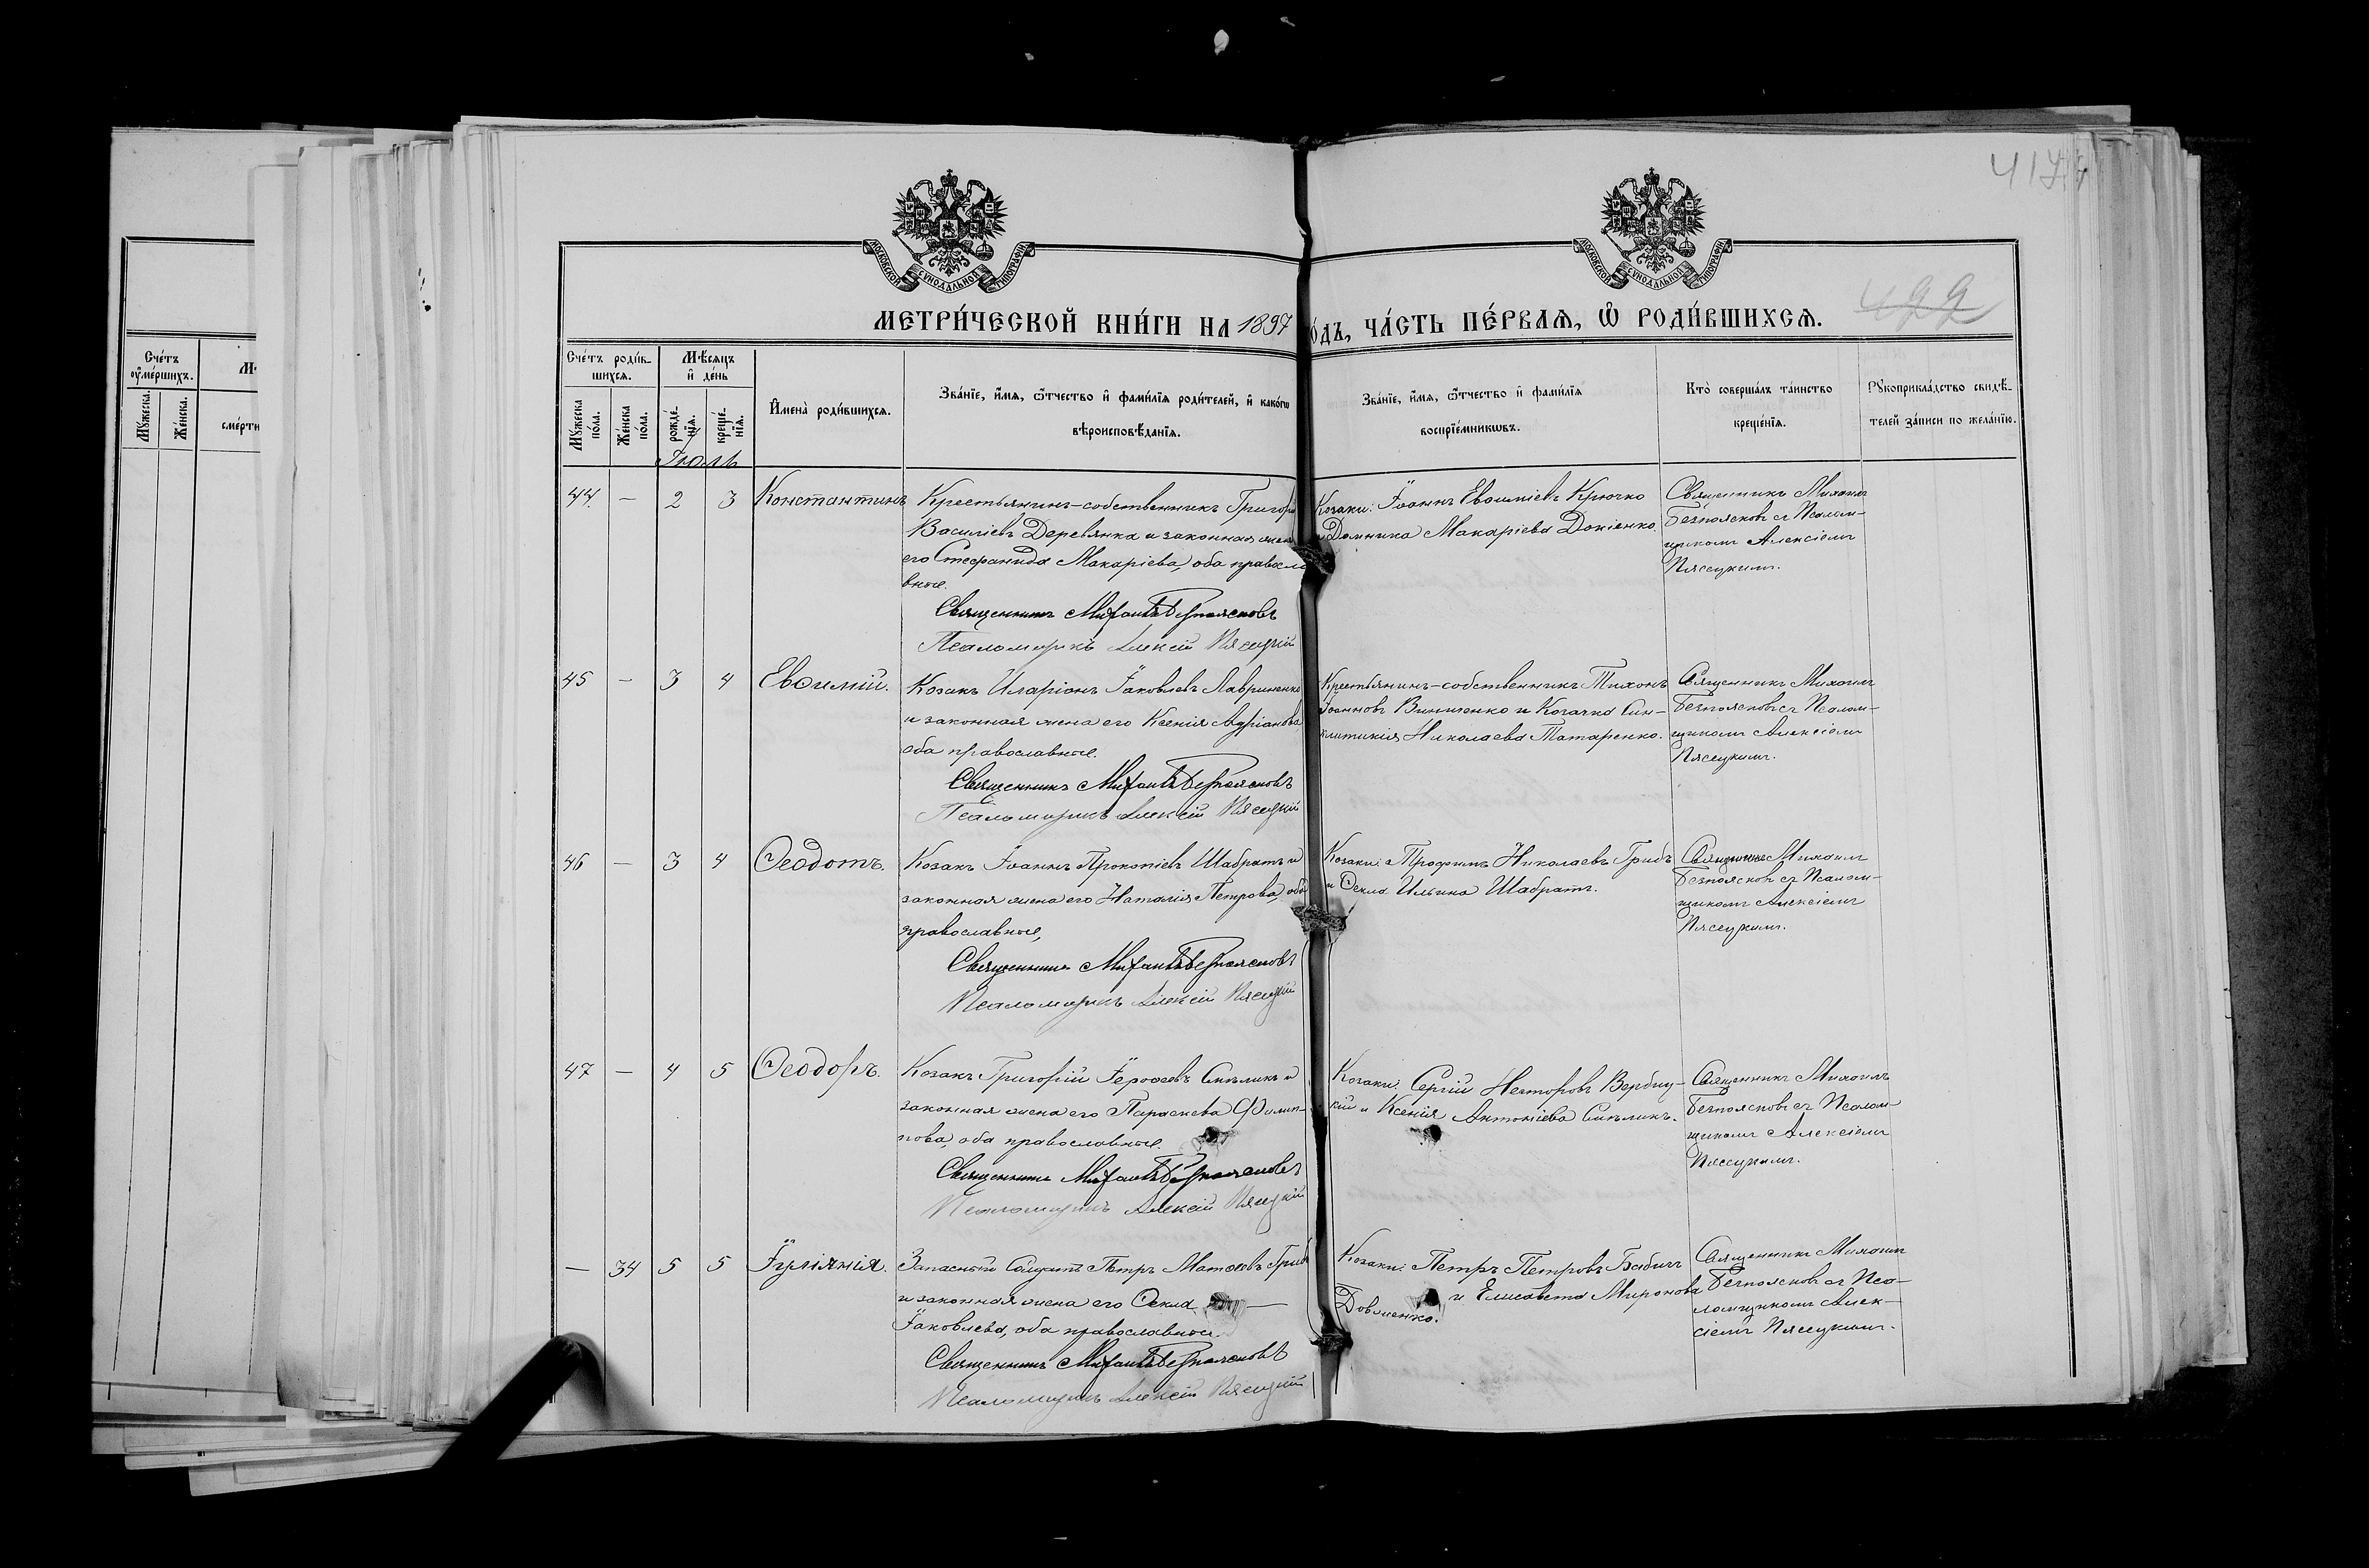 417
МОСКОВСКОЙ СУНОДАЛЬНОЙ ТИПОГРАФІИ
МОСКОВСКОЙ СУНОДАЛЬНОЙ ТИПОГРАФІИ
499
МЕТРИ́ЧЕСКОЙ КНИ́ГИ НА 1897 О́ДЪ, ЧА́СТЬ ПЕ́РВАѦ, Ѡ҆ РОДИ́ВШИХСѦ.
Сче́тъ оу҆ме́ршихъ.
Мꙋ́жеска.
Же́нска.
Сче́тъ роди́в-
шихсѧ.
Мѣ́сяцъ
и҆ де́нь
Мꙋ́жеска
по́ла.
Же́нска
по́ла.
рожде́-
нїѧ.
креще́-
нїѧ.
И҆мена̀ роди́вшихсѧ.
Зва́нїе, и҆́мѧ, ѻ҆́тчество и҆ фами́лїѧ роди́телей, и҆ како́гѡ
вѣроисповѣ́данїѧ.
Зва́нїе, и҆́мѧ, ѻ҆́тчество и҆ фами́лїѧ
воспрїе́мникѡвъ.
Кто̀ соверша́лъ та́инство
креще́нїѧ.
Рꙋкоприкла́дство свидѣ́-
телей за́писи по жела́нїю.
Іюль
44. — 2 3 Константинъ
Крестьянинъ-собственникъ Григорій
Василіевъ Деревянка и законная жена
его Стефанида Макаріева, оба правосла
вные.
Священникъ Михаилъ Безпоясковъ
Псаломщикъ Алексій Пясецкій
Козаки: Іоаннъ Евѳиміевъ Крючко
и Домника Макаріева Доніенко.
Священникъ Михаилъ
Безпоясковъ съ Псалом-
щикомъ Алексіемъ
Пясецкимъ.
45 — 3 4 Евѳимій.
Козакъ Иларіонъ Іаковлевъ Лавриненко
и законная жена его Ксенія Адріанова,
оба православные.
Священникъ Михаилъ Безпоясковъ
Псаломщикъ Алексій Пясецкій
Крестьянинъ-собственникъ Тихонъ
Іоанновъ Винниченко и Козачка Син-
клитикія Николаева Татаренко.
Священникъ Михаилъ
Безпоясковъ съ Псалом-
щикомъ Алексіемъ
Пясецкимъ.
46 — 3 4 Ѳеодотъ.
Козакъ Іоаннъ Прокопіевъ Шабратъ и
законная жена его Наталія Петрова, оба
православные,
Священникъ Михаилъ Безпоясковъ
Псаломщикъ Алексій Пясецкій
Козаки: Трофимъ Николаевъ Грибъ
и Ѳекла Ильина Шабратъ.
Священникъ Михаилъ
Безпоясковъ съ Псалом-
щикомъ Алексіемъ
Пясецкимъ.
47 — 4 5 Ѳеодоръ.
Козакъ Григорій Іероѳеевъ Симликъ и
законная жена его Параскева Филип-
пова, оба православные.
Священникъ Михаилъ Безпоясковъ
Псаломщикъ Алексій Пясецкій
Козаки: Сергій Несторовъ Вербиц-
кій и Ксенія Антоніева Симликъ.
Священникъ Михаилъ
Безпоясковъ съ Псалом-
щикомъ Алексіемъ
Пясецкимъ.
— 34 5 5 Іуліанія.
Запасный Солдатъ Петръ Матѳеевъ Грибъ
и законная жена его Ѳекла —
Іаковлева, оба православные.
Священникъ Михаилъ Безпоясковъ
Псаломщикъ Алексій Пясецкій
Козаки: Петръ Петровъ Бабичъ
и Елисавета Миронова
Довженко.
Священникъ Михаилъ
Безпоясковъ съ Пса-
ломщикомъ Алек-
сіемъ Пясецкимъ.